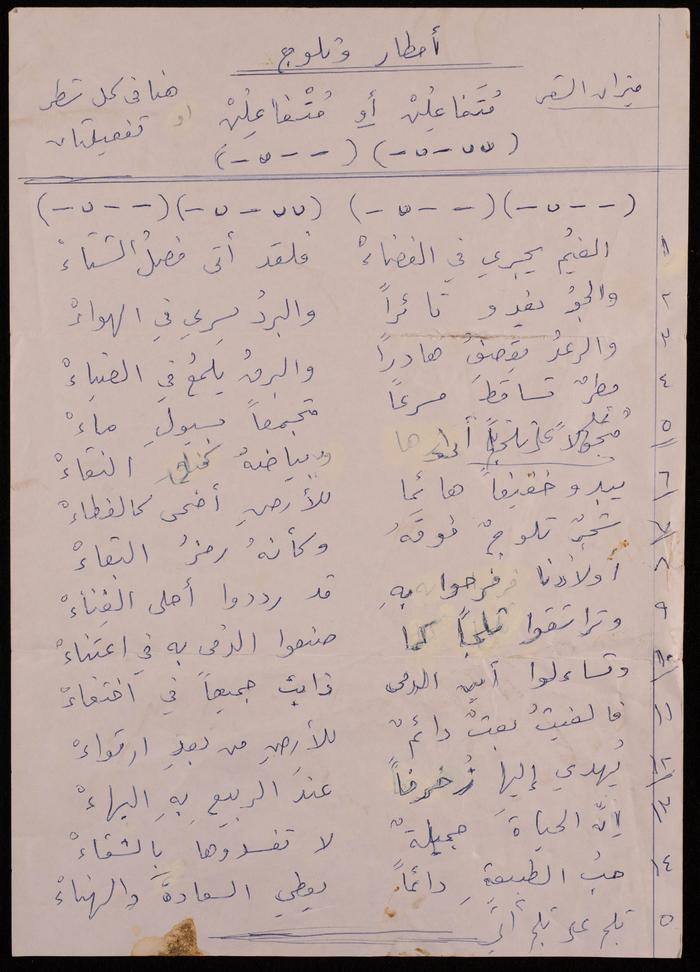 أمطار وثلوج
ميزان الشعر مُتَفاعِلُنْ أو مُتْفاعِلُنْ هنا في كل شطر
أو تفعيلتان
(ںں-ں-) (--ں-)
(--ں-)(--ں-) (ںں-ں-)(--ں-)
١ الغيْمُ يجري في الفضاءْ فلقد أتى فصلُ الشتاءْ
٢ والجوُّ يغدو ثائراً والبردُ يسري في الهواءْ
٣ والرعدُ يقصفُ هادراً والبرقُ يلمعُ في الضياءْ
٤ مطرٌ تساقطَ مسرعاً متجمعاً بسيولِ ماءْ
٥ وبياضهُ النقاءْ
٦ يبدو خفيفاً هائماً للأرضِ أضحى كالغطاءْ
٧ شجرٌ ثلوجٌ فوقَهُ وكأنهُ رمزُ البقاءْ
٨ أولادنا فرحوا بهِ قد رددوا أحلى الغِناءْ
٩ وتراشقوا ثلجاً كما صنعوا الدُمى به في اعتناءْ
١٠ وتساءلوا أين الدمى ذابت جميعاً في اختفاءْ
١١ فالغيثُ دائمٌ للأرضِ من بعدِ ارتواءْ
١٢ يُهدي إليها زُخرفاً عندَ الربيعِ بهِ البهاءْ
١٣ إنَّ الحياةَ جميلةٌ لا تفسدوها بالشقاءْ
١٤ حبُّ الطبيعةِ دائماً يعطي السعادةَ والهناءْ
٥ ثلج على ثلج أتى